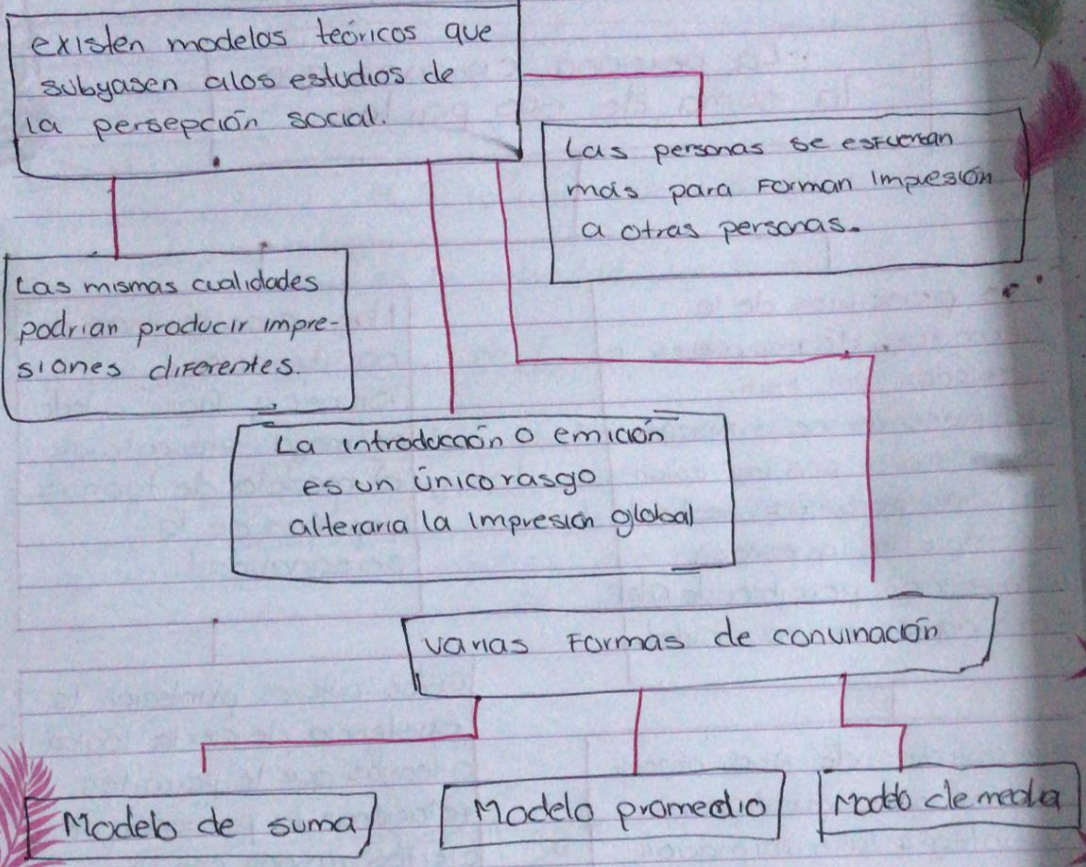 existen modelos teóricos que
subyasen alos estudios de
la persepción social.
Las personas se esfuersan
más para Forman Impresión
a otras personas.
Las mismas cualidades
podrian producir impre-
siones diferentes.
La introducción o emición
es un únicorasgo
alteraria la impresión global
varias Formas de convinación
Modelo de suma
Modelo promedio
Modelo de media